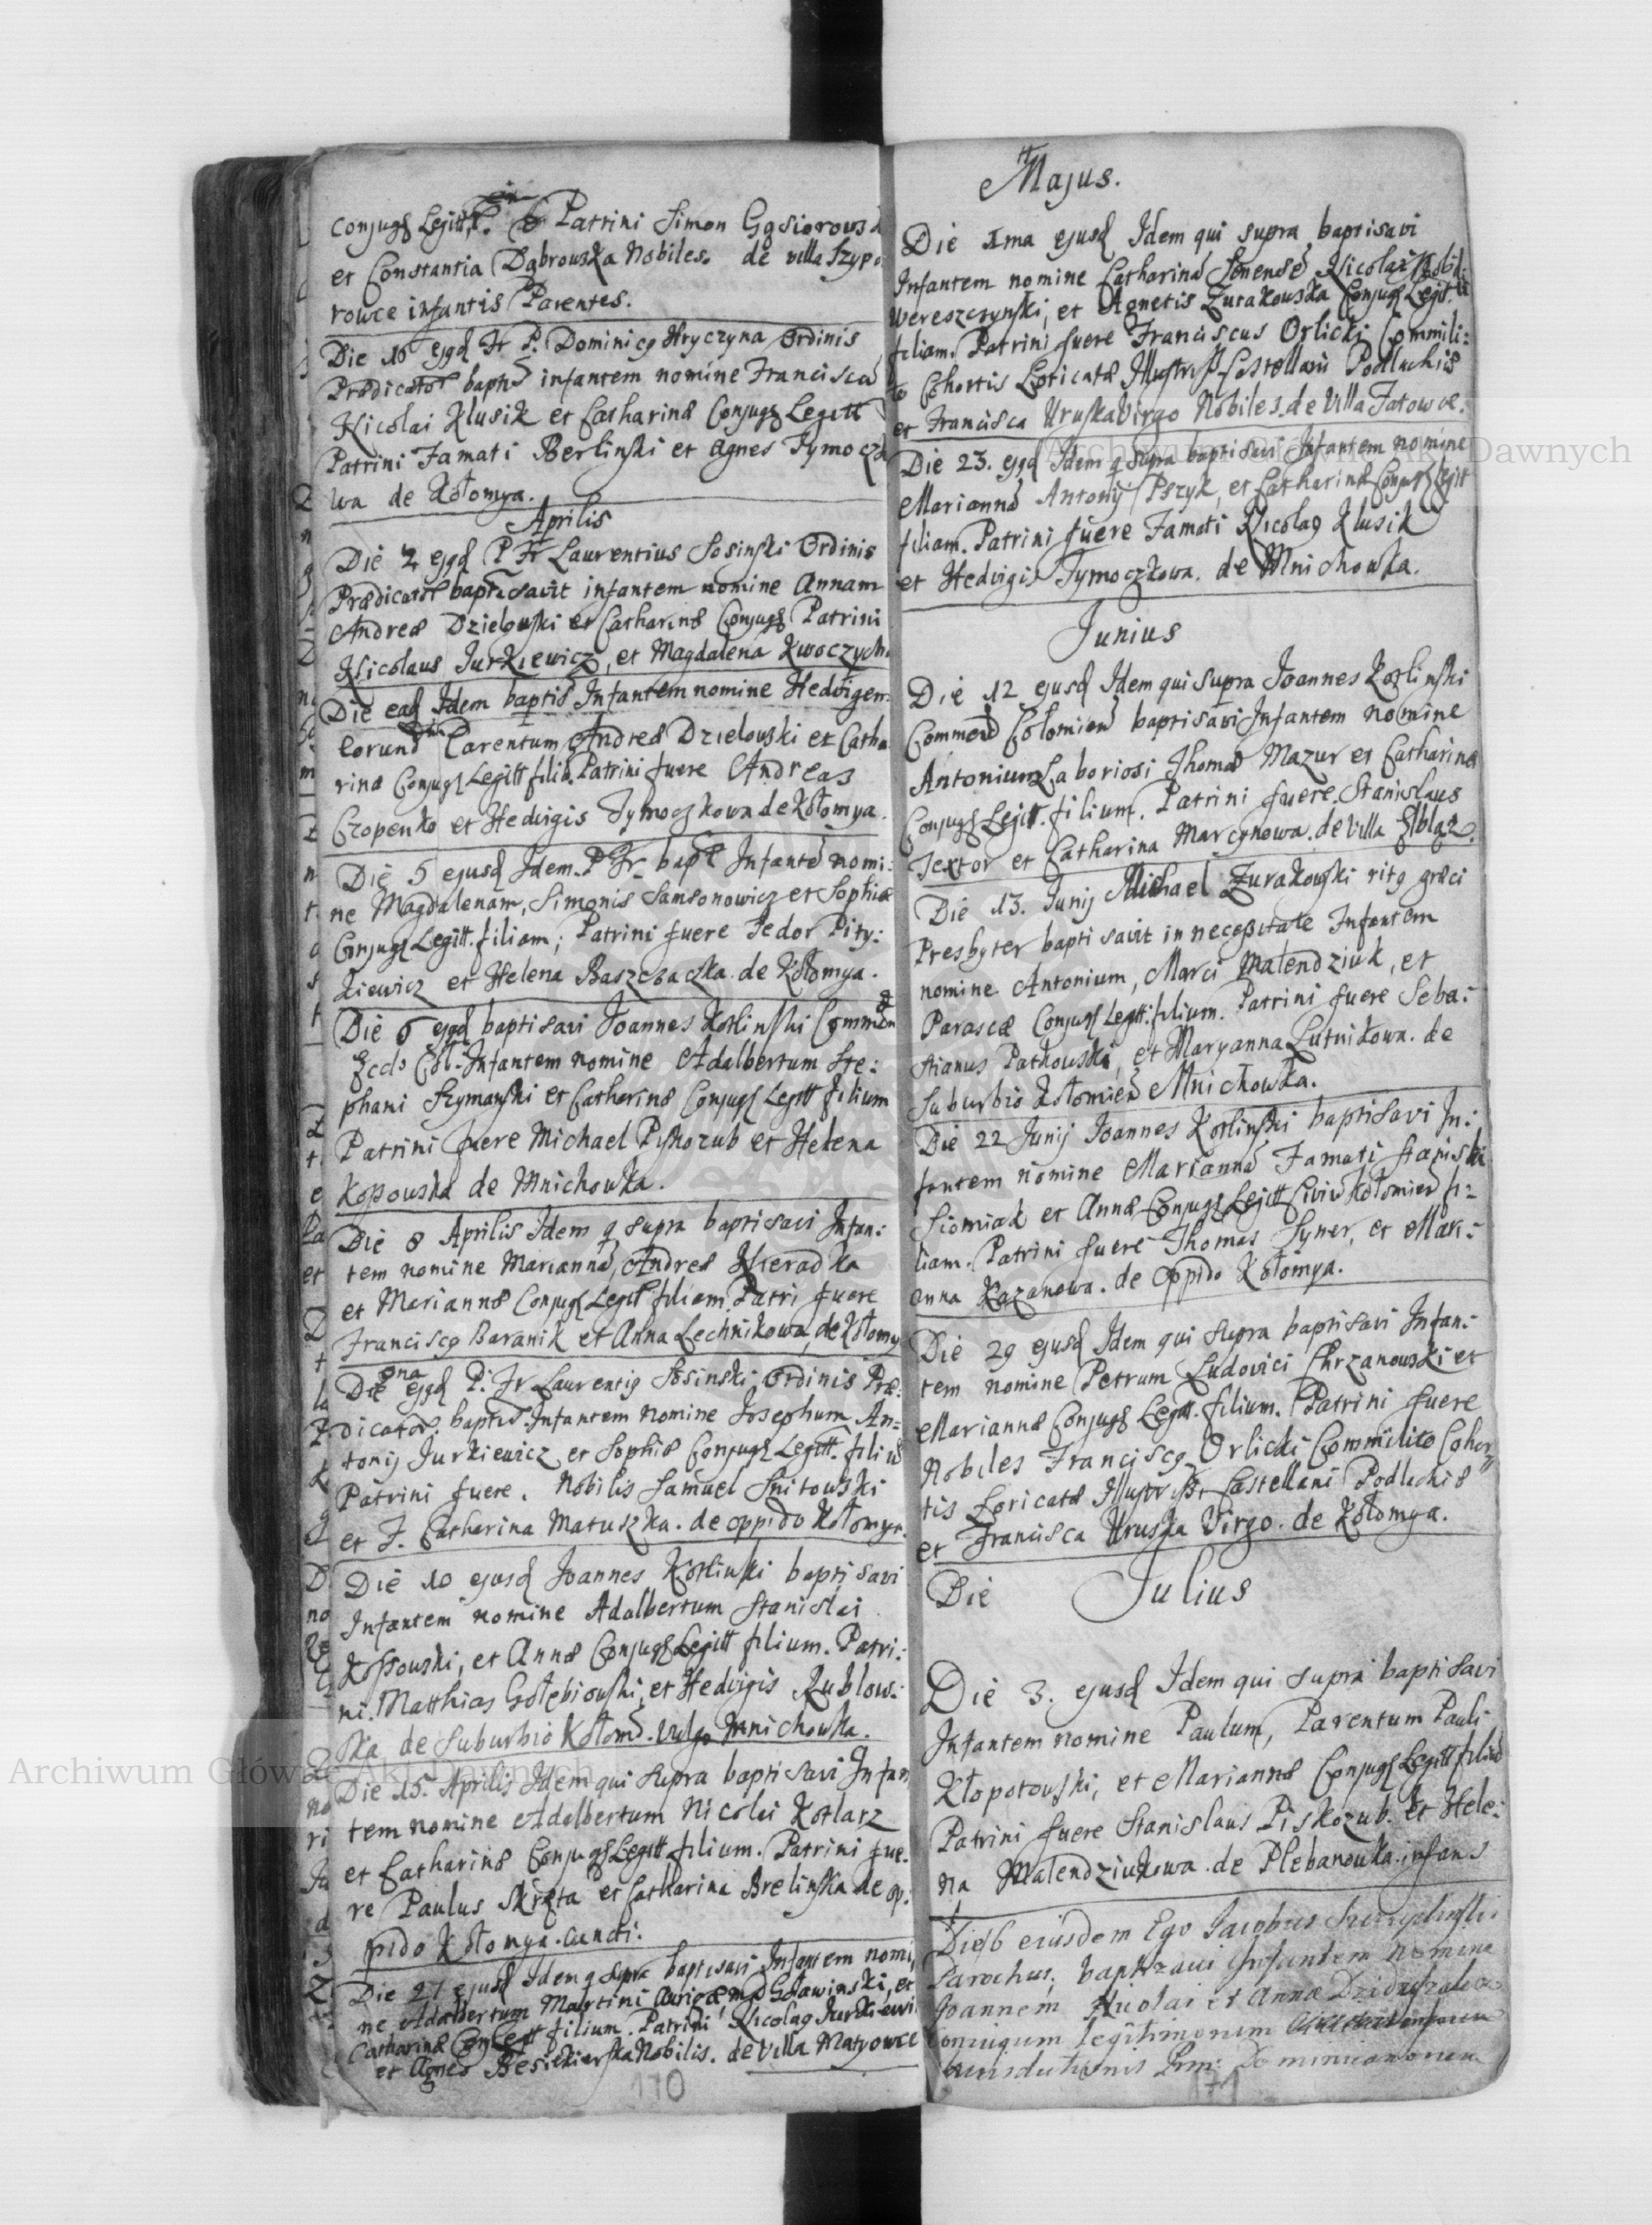 conjugū Legitt. Patrini Simon Gąsiorowsk
et Constantia Dąbrowska Nobiles. de villa Szypo
rowce infantis Parentes.
Die 10 ejqd Fr P. Dominicq Hryczyna Ordinis
Prædicator baptis infantem nomine Francisca
Nicolai Klusik et Catharinæ Conjugū Legitt
Patrini Famati Berlinski et Agnes Tymoczk
wa de Kołomya.
Aprilis
Die 2 ejqd P Fr Laurentius Sosinski Ordinis
Prædicator baptisavit infantem nomine Annam
Andreæ Dzielowski et Catharinæ Conjugū Patrini
Nicolaus Jurkiewicz, et Magdalena Kwoczych
Die ead Idem baptis Infantem nomine Hedvigem
eorund Parentum Andreæ Dzielowski et Catha
rinæ Conjugū Legitt filiā. Patrini fuere Andreas
Czopenko et Hedvigis Tymoczkowa de Kołomya.
Die 5 ejusd Idem P Fr bapt Infantē nomi:
ne Magdalenam, Simonis Samsonowicz et Sophiæ
Conjugū Legitt. filiam; Patrini fuere Fedor Pity:
kiewicz et Helena Baszczacka de Kołomya.
Die 6 ejqd baptisavi Joannes Kotlinski Commen
Eccls Col. Infantem nomine Adalbertum Ste:
phani Szymanski et Catharinæ Conjugū Legitt filium
Patrini fuere Michael Piskozub et Helena
Kossowska de Mnichowka.
Die 8 Aprilis Idem q supra baptisavi Infan:
tem nomine Mariannā, Andreæ Kieradka
et Mariannæ Conjugū Legitt filiam Patri fuere
Franciscq Baranik et Anna Lechnikowa, de Kołomy
Die 9na ejqd P. Fr Laurentiq Sosinski Ordinis Præ:
dicator. baptis Infantem nomine Josephum An=
tonij Jurkiewicz et Sophiæ Conjugū Legitt. filiū
Patrini fuere. Nobilis Samuel Snitowski
et F. Catharina Matuszka. de oppido Kołomya.
Die 10 ejusd Joannes Kotlinski baptisavi
Infantem nomine Adalbertum Stanislai
Kossowski, et Annæ Conjugū Legitt filium. Patri:
ni. Matthias Gołębiowski, et Hedvigis Kublow:
ska de Suburbio Kołomē. vulgo Mnichowka.
Die 15. Aprilis Idem qui supra baptisavi Infan
tem nomine Adalbertum Nicolai Kotlarz
et Catharinæ Conjugū Legitt filium. Patrini fue.
re Paulus Skręta et Catharina Brelinska de op:
pido Kołomya. cuncti.
Die 21 ejusd Idem q supra baptisavi Infantem nomi,
ne Adalbertum Martini Gławinski, et
Catharinæ Con Legitt filium. Patrini Nicolaq Jurkiewi
et Agnes Besiekierska Nobilis. de Villa Matyowce
110
Majus.
Die 1ma ejusd Idem qui supra baptisavi
Infantem nomine Catharinā Senensē Nicolai Nobil:
Wereszczynski, et Agnetis Żurakowska Conjugū Legit
filiam. Patrini fuere Franciscus Orlicki Commili:
to Cohortis Loricatæ Castellani Podlachiæ
et Francisca Uruska Virgo Nobiles. de Villa Fatowce.
Die 23. ejqd Idem q supra baptisavi Infantem nomine
Mariannā Antonij Pszyk, et Catharinæ Conjugū Legitt
filiam. Patrini fuere Famati Nicolaq Klusik
et Hedvigis Tymoczkowa. de Mnichowka.
Junius
Die 12 ejusd Idem qui supra Joannes Kotlinski
Commend Colomien baptisavi Infantem nomine
Antonium Laboriosi Thomæ Mazur et Catharinæ
Conjugū Legitt. filium. Patrini fuere Stanislaus
Textor et Catharina Marcynowa. de Villa
Die 13. Junij Michael Żurakowski ritq græci
Presbyter baptisavit in necessitate Infantem
nomine Antonium, Marci Malendziuk, et
Parascæ Conjugū Legitt: filium. Patrini fuere Seba:
stianus Patkowski, et Maryanna Lutnikowa. de
Suburbio Kołomien Mnichowka.
Die 22 Junij Joannes Kotlinski baptisavi In:
fantem nomine Mariannā Famati
Siomiak et Annæ Conjugū Legitt Civiū Kołomien fi=
liam. Patrini fuere Thomas Syner, et Mari:
anna Kazanowa. de oppido Kołomya.
Die 29 ejusd Idem qui supra baptisavi Infan:
tem nomine Petrum Ludovici Chrzanowski et
Mariannæ Conjugū Legitt. filium. Patrini fuere
Nobiles Franciscq Orlicki Commilito Cohor
tis Loricatæ Castellani Podlachiæ
et Francisca Uruska Virgo. de Kołomya.
Die Julius
Die 3. ejusd Idem qui supra baptisavi
Infantem nomine Paulum, Parentum Pauli
Kłopotowski, et Mariannæ Conjugū Legitt filiū
Patrini fuere Stanislaus Piskozub. et Hele:
na Malendziukowa. de Plebanowka. infans
Die 6 eiusdem Ego Jacobus
Parochus, baptizavi Infantem Nomine
Joannem Nicolai et Annæ
Coniugum legitimorum
Dominicanorum
171
Archiwum Główne Akt Dawnych
Archiwum Główne Akt Dawnych